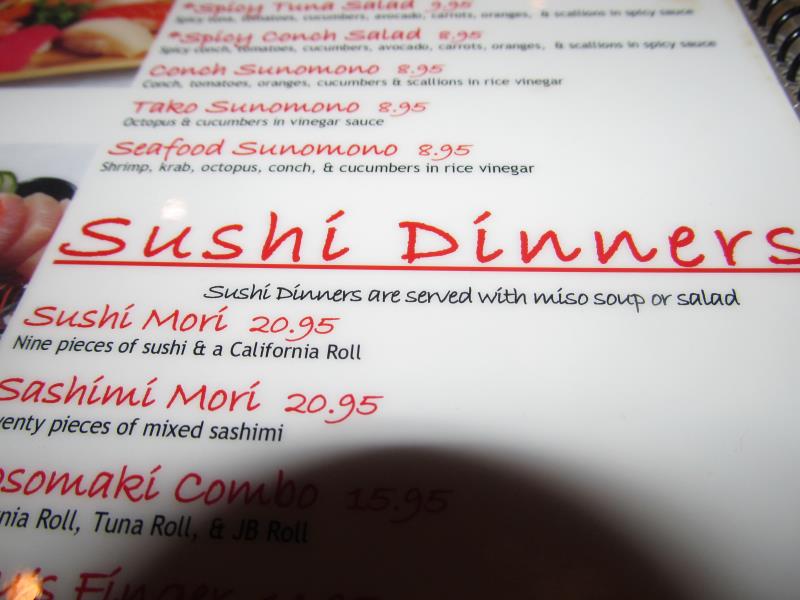 *Spicy Tuna Salad 9.95
Spicy tuna, tomatoes, cucumbers, avocado, carrots, oranges, & scallions in spicy sauce
*Spicy Conch Salad 8.95
Spicy conch, tomatoes, cucumbers, avocado, carrots, oranges, & scallions in spicy sauce
Conch Sunomono 8.95
Conch, tomatoes, oranges, cucumbers & scallions in rice vinegar
Tako Sunomono 8.95
Octopus & cucumbers in vinegar sauce
Seafood Sunomono 8.95
Shrimp, krab, octopus, conch, & cucumbers in rice vinegar
Sushi Dinners
Sushi Dinners are served with miso soup or salad
Sushi Mori 20.95
Nine pieces of sushi & a California Roll
Sashimi Mori 20.95
enty pieces of mixed sashimi
osomaki Combo 15.95
nia Roll, Tuna Roll, & JB Roll
's Finger